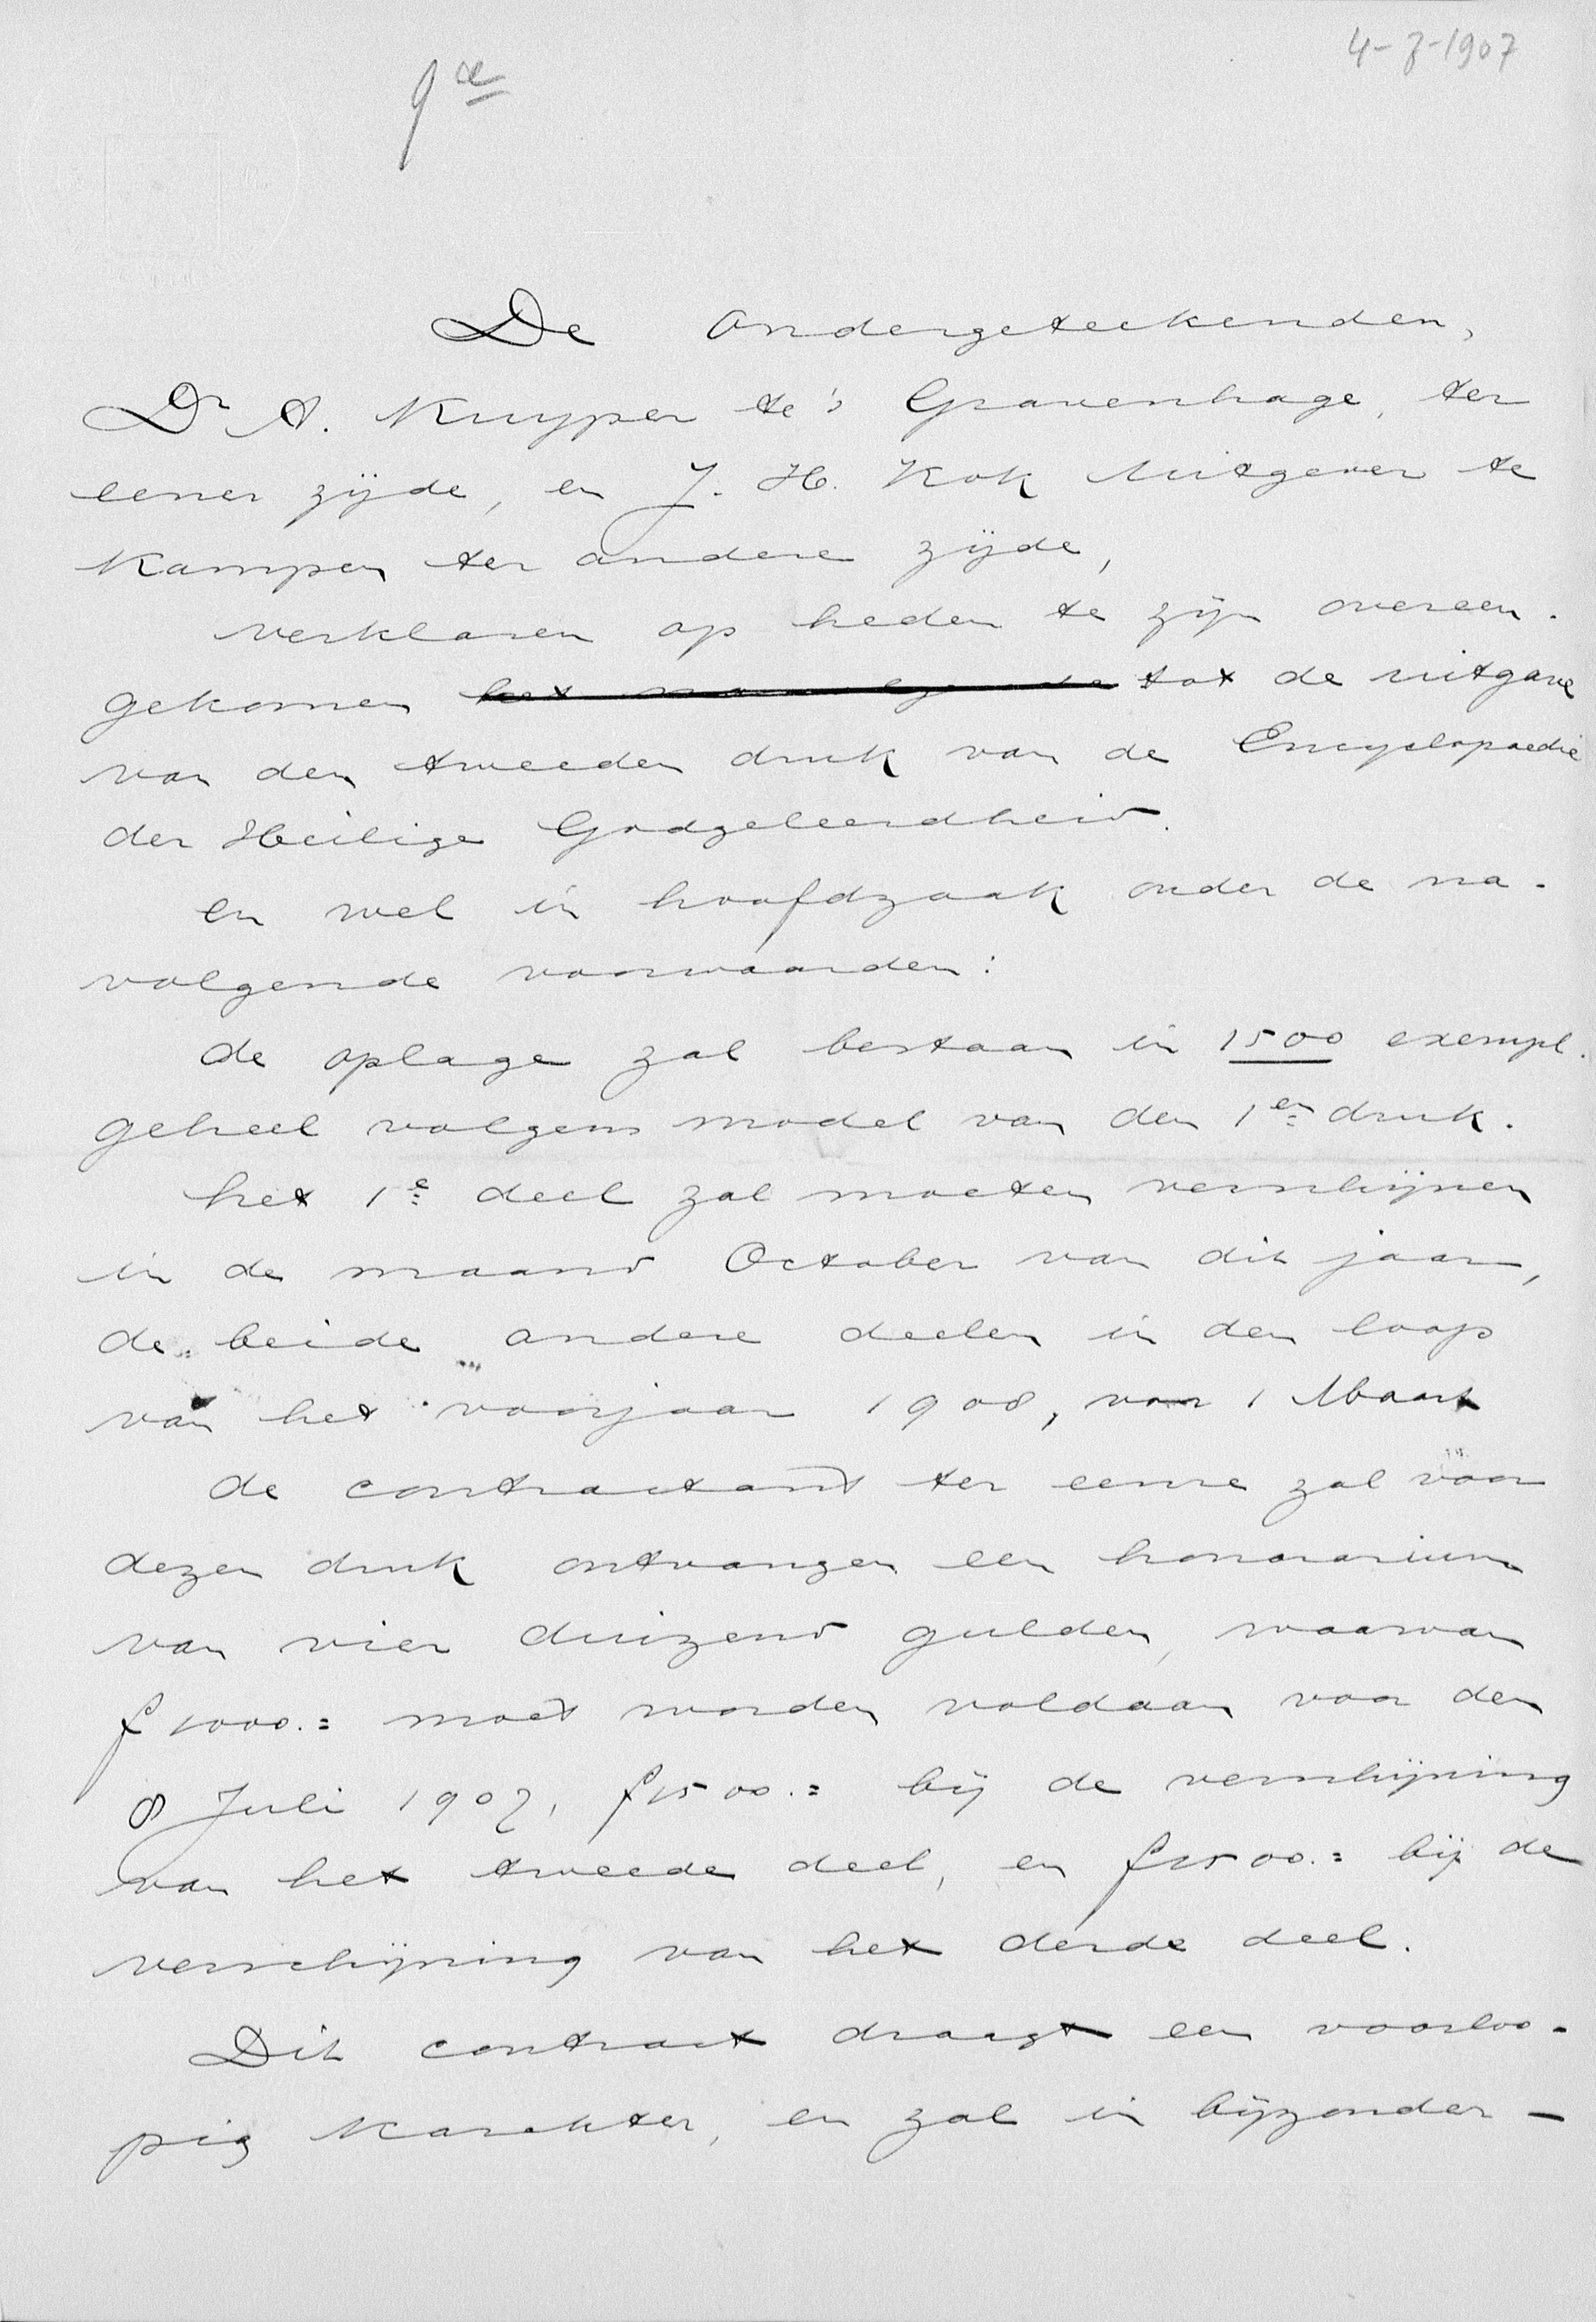 4-7-1907
De ondergeteekenden,
Dr A. Kuyper te 's Gravenhage, ter
eener zijde, en J. H. Kok Uitgever te
Kampen ter andere zijde,
verklaren op heden te zijn overeen-
gekomen tot de uitgave
van den tweeden druk van de Encyclopaedie
der Heilige Godgeleerdheid.
en wel in hoofdzaak onder de na-
volgende voorwaarden:
de oplage zal bestaan in 1500 exempl.
geheel volgens model van den 1en druk.
het 1e deel zal moeten verschijnen
in de maand October van dit jaar,
de beide andere deelen in den loop
van het voorjaar 1908, voor 1 Maart
de contractant ter eenre zal voor
dezen druk ontvangen een honorarium
van vier duizend gulden, waarvan
f 1000.= moet worden voldaan voor den
8 Juli 1907, f 1500.= bij de verschijning
van het tweede deel, en f 1500.= bij de
verschijning van het derde deel.
Dit contract draagt een voorloo-
pig karakter, en zal in bijzonder-